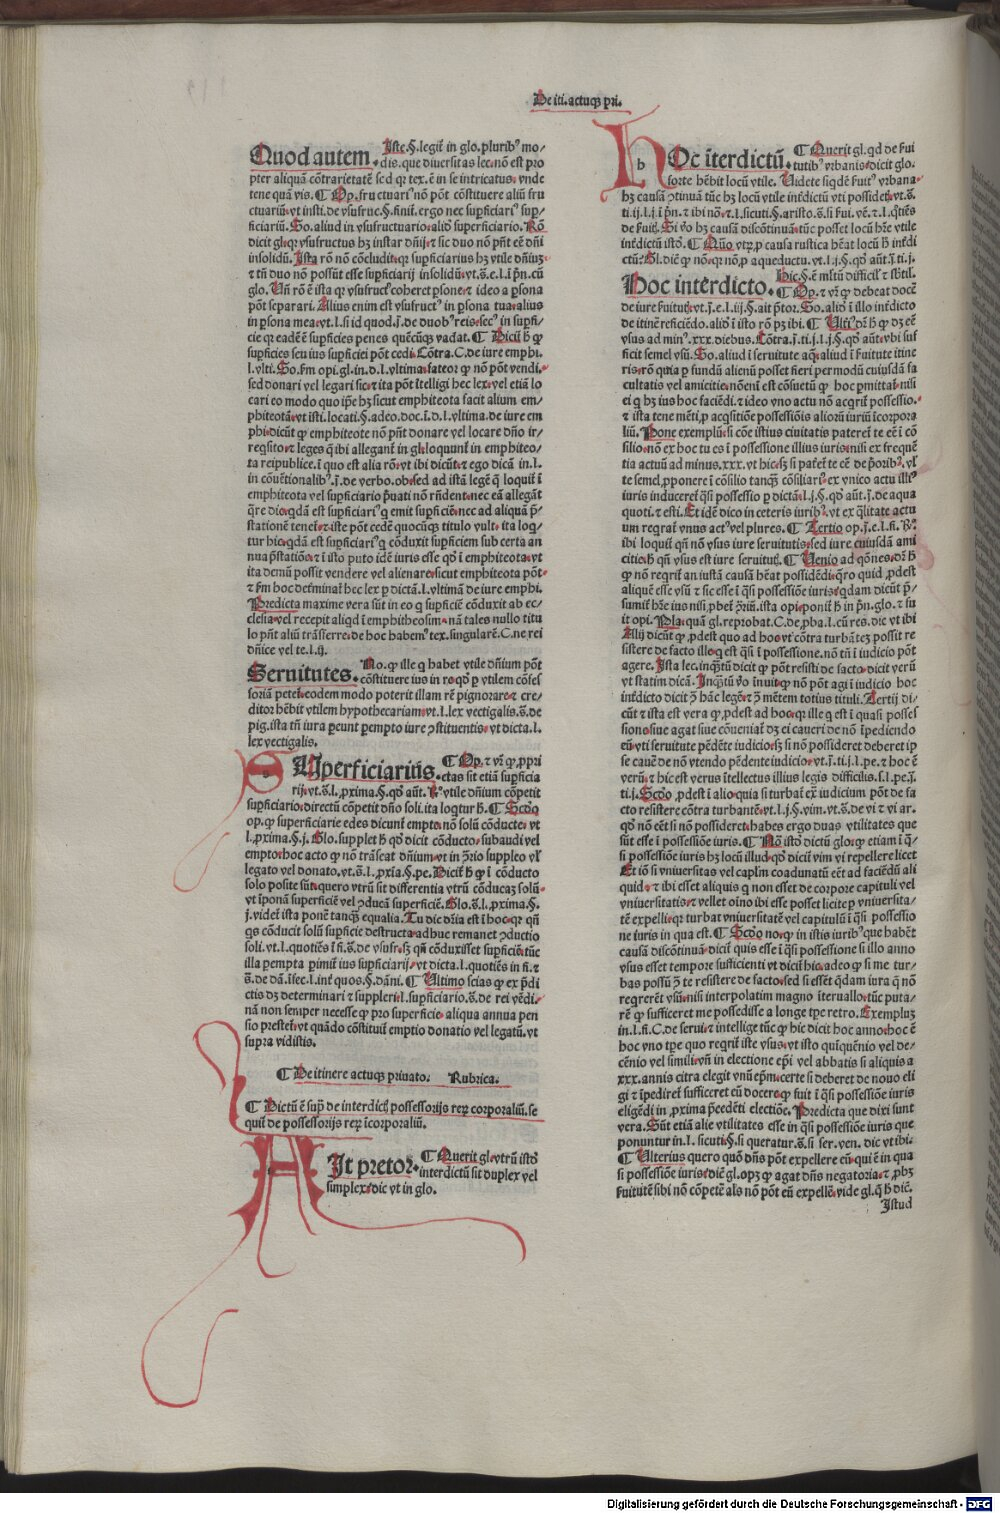 De iti. actuqꝫ pri.
Quod autem. Iste.§. legit̄ in glo. pluribꝰ mo⸗
dis. que diuersitas lec. nō est pro
pter aliquā cōtrarietatē sed qꝛ tex. ē in se intricatus. vnde
tene quā vis. ¶ Op. fructuariꝰ nō pōt cōstituere aliū fru
ctuariū. vt insti. de vsufruc.§. finit. ergo nec suꝑficiariꝰ suꝑ⸗
ficiariū. So. aliud in vsufructuario. aliō suꝑficiario. Rō
dicit gl. qꝛ vsufructus hꝫ instar dn̄ij. ⁊ sic duo nō pn̄t eē dn̄i
insolidū. Ista rō nō cōcludit. qꝛ suꝑficiarius hꝫ vtile dn̄iuꝫ.
⁊ tn̄ duo nō possūt esse suꝑficiarij insolidū. vt.s̄.e.l.i in pn̄. cū
glo. Vn̄ rō ē ista qꝛ vsufruct coheret ꝑsone. ⁊ ideo a ꝑsona
pōt separari. Alius enim est vsufructꝰ in ꝑsona tua. alius
in ꝑsona mea. vt.l. si id quod.j. de duobꝰ reis. secꝰ in suꝑfi⸗
cie qꝛ eadē ē suꝑficies penes quēcūqꝫ vadat. ¶ Dicit h̄ ꝙ
suꝑficies seu ius suꝑficiei pōt cedi. Cōtra. C. de iure emphi.
l. vlti. So. fm opi. gl. in. d. l. vltima. fateor ꝙ nō pōt vendi.
sed donari vel legari sic. ⁊ ita pōt ītelligi hec lex. vel etiā lo
cari eo modo quo ip̄e hꝫ sicut emphiteota facit alium em⸗
phiteotā. vt īsti. locati.§. adeo. doc. ī. d. l. vltima. de iure em
phi. dicūt ꝙ emphiteote nō pn̄t donare vel locare dn̄o ir⸗
reqsito. ⁊ leges q̄ ibi allegant̄ in gl. loquunt̄ in emphiteo⸗
ta reipublice. ī quo est alia rō. vt ibi dicūt. ⁊ ego dicā in. l.
in cōuētionalibꝰ.j. de verbo. ob. sed ad istā legē q̄ loquit̄ ī
emphiteota vel suꝑficiario p̄uati nō rn̄dent. nec eā allegāt
q̄re dic. qdā est suꝑficiariꝰ q emit suꝑficiē. nec ad aliquā p̄⸗
stationē tenet̄. ⁊ iste pōt cedē quocūqꝫ titulo vult. ita loq⸗
tur hic. qdā est suꝑficiariꝰ q cōduxit suꝑficiem sub certa an
nua p̄statiōe. ⁊ ī isto puto idē iuris esse qd̓ ī emphiteota. vt
ita demū possit vendere vel alienare. sicut emphiteota pōt.
⁊ fm hoc deīminat̄ hec lex ꝑ dictā. l. vltimā de iure emphi.
Predicta maxime vera sūt in eo q suꝑficiē cōduxit ab ec⸗
clesia. vel recepit aliqd ī emphitheosim. nā tales nullo titu
lo pn̄t aliū trāsferre. de hoc habemꝰ tex. singularē. C. ne rei
dn̄ice vel te. l. ij.
Seruitutes. No. ꝙ ille q habet vtile dn̄ium pōt
cōstituere ius in re. qd̓ ꝑ vtilem cōfes
soriā petet̄. eodem modo poterit illam rē pignorare. ⁊ cre⸗
ditor hēbit vtilem hypothecariam. vt. l. lex vectigalis.s̄. de
pig. ista tn̄ iura ꝑeunt ꝑempto iure ꝯstituentis. vt dicta. l.
lex vectigalis.
SUperficiariꝰ. ¶ Op. ⁊ vr̄ ꝙ ꝓpri
etas sit etiā suꝑficia
rij. vt.s̄. l. ꝓxima.§. qd̓ aūt. Rꝰ vtile dn̄ium cōpetit
suꝑficiario. directū cōpetit dn̄o soli. ita loqtur h̄. ¶ Scd̓o
op. ꝙ suꝑficiarie edes dicunt̄ empte. nō solū cōducte. vt
l. ꝓxima.§.j. Glo. supplet h̄ qd̓ dicit cōducto. subaudi vel
empto. hoc acto ꝙ nō trāseat dn̄ium. vt in ꝯrio suppleo vl̓
legato vel donato. vt.s̄. l. ꝓxīa.§. pe. Dicit̄ h̄ ꝙ ī cōducto
solo posite sūt. quero vtrū sit differentia vtrū cōducaꝫ solū.
vt īponā suꝑficiē vel ꝯducā suꝑficiē. Glo.s̄. l. ꝓxima.§.
j. videt̄ ista ponē tanqꝫ equalia. Tu dic dr̄ia est ī hoc. qꝛ qn̄
qs cōducit solū suꝑficie destructa adhuc remanet ꝯductio
soli. vt. l. quotiēs ī fi.s̄. de vsufr. sꝫ qn̄ cōduxisset suꝑficiē. tūc
illa ꝑempta ꝑimit̄ ius suꝑficiarij. vt dicta. l. quotiēs in fi. ⁊
s̄. de dā. īfec. l. int̄ quos.§. dāni. ¶ Ultimo scias ꝙ ex p̄di
ctis dꝫ determinari ⁊ suppleri. l. suꝑficiario.s̄. de rei vēdi.
nā non semper necesse ꝙ pro superficie aliqua annua pen
sio prestet̄. vt quādo cōstituit̄ emptio donatio vel legatū. vt
supra vidistis.
¶ De itinere actuqꝫ priuato. Rubrica.
¶ Dictū ē supꝰ de interdictꝭ possessorijs reꝝ corporaliū. se
quit̄ de possessorijs reꝝ īcorporaliū.
AIt pretor. ¶ Querit gl. vtrū istd̓
interdictū sit duplex vel
simplex. dic vt in glo.
HOc īterdictū. ¶ Querit gl. qd de ẜui
tutibꝰ vrbanis. dicit glo.
forte hēbit locū vtile. Videte siqdē ẜuitꝰ vrbana.
hꝫ causā ꝯtinuā tūc hꝫ locū vtile inťdictū vti possidetꝭ. vt.s̄.
ti.ij. l. j. ī pn̄. ⁊ ibi nō. ⁊. l. sicuti.§. aristo.s̄. si ẜui. vē. ⁊. l. q̄tiēs
de ẜuitꝭ. Si vo hꝫ causā discōtinuā. tūc posset locū hr̄e vtile
inťdictū istd̓. ¶ Qn̄o vtꝝ ꝓ causa rustica hēat locū h̄ inťdi
ctū? Gl. dic ꝙ nō. qꝛ nō ꝓ aqueductu. vt. l. j.§. qd̓ aūt.j. ti.j.
Hoc interdicto. Hic.§. ē mltū difficil̓ ⁊ sbtil̓.
¶ Op. ⁊ vr̄ ꝙ debeat docē
de iure ẜuitutꝭ. vt.j.e. l. iij.§. ait p̄tor. So. aliō ī illo inťdicto
de itinē reficiēdo. aliō ī isto rō pꝫ ibi. ¶ Ulti. dr̄ h̄ ꝙ dꝫ eē
vsus ad minꝰ. xxx. diebus. Cōtra.j. ti.j. l.j.§. qd̓ aūt. vbi suf
ficit semel vsū. So. aliud ī seruitute aq̄. aliud ī ẜuitute itine
ris. rō quia ꝑ fundū alienū posset fieri ꝑmodū cuiusdā fa
cultatis vel amicitie. nōenī est cōsuetū ꝙ hoc ꝑmittat̄. nisi
ei q hꝫ ius hoc faciēdi. ⁊ ideo vno actu nō acqrit̄ possessio.
⁊ ista tene mēti. ꝓ acqsitiōe possessiōis alioꝝ iuriū īcorpora
liū. Pone exemplū. si cōe istius ciuitatis pateret̄ te eē ī cō
silio. nō ex hoc tu es ī possessione illius iuris. nisi ex frequē
tia actuū ad minus. xxx. vt hic. sꝫ si patet̄ te eē de p̄oribꝰ. vl̓
te semel ꝓponere ī cōsilio tanqꝫ cōsiliariꝰ. ex vnico actu illiꝰ
iuris induceret̄ qsi possessio ꝑ dictā. l.j.§. qd̓ aūt.j. de aqua
quoti. ⁊ esti. Et idē dic in ceteris iuribꝰ. vt ex q̄litate actu
um reqrat̄ vnus actꝰ vel plures. ¶ Tertio op.j.e. l. fi. Rꝰ.
ibi loquit̄ qn̄ nō vsus iure seruitutis. sed iure cuiusdā ami
citie. h̄ qn̄ vsus est iure seruitutꝭ. ¶ Uenio ad qōnes. dr̄ h̄
ꝙ nō reqrit̄ an iustā causā hēat possidēdi. qro quid ꝓdest
aliquē esse vsū ⁊ sic esse ī qsi possessiōe iuris. qdam dicūt p̄⸗
sumit̄ hr̄e ius nisi ꝓbet̄ ꝯriū. ista opi. ponit̄ h̄ in pn̄. glo. ⁊ fu
it opi. Pla. quā gl. reprobat. C. de ꝓba. l. cū res. dic vt ibi
Alij dicūt ꝙ ꝓdest quo ad hoc vt cōtra turbātez possit re
sistere de facto ille. q est qsi ī possessione. nō tn̄ ī iudicio pōt
agere. Ista lec. inqꝫtū dicit ꝙ pōt resisti de facto. dicit verū
vt statim dicā. Inqꝫtū vo īnuit ꝙ nō pōt agi ī iudicio hoc
inťdicto dicit ꝯ hāc legē. ⁊ ꝯ mētem totius tituli. Tertij di⸗
cūt ⁊ ista est vera ꝙ ꝓdest ad hoc. qꝛ ille q est ī quasi posses
sione siue agat siue cōueniat̄ dꝫ ei caueri de nō īpediendo
eū. vt ī seruitute pēdēte iudicio. sꝫ si nō possideret deberet ip
se cauē de nō vtendo pēdente iudicio. vt.j. ti.j. l. pe. ⁊ hoc ē
verū. ⁊ hic est verus ītellectus illius legis difficilis. s. l. pe.j.
ti.j. Scd̓o ꝓdest ī alio. quia si turbat̄ ext̓ iudicium pōt de fa
cto resistere cōtra turbantē. vt. l.j.§. vim. vt.s̄. de vi ⁊ vi ar.
qd̓ nō eēt si nō possideret. habes ergo duas vtilitates que
sūt esse ī possessiōe iuris. ¶ No. istd̓ dictū glo. ꝙ etiam ī q̄⸗
si possessiōe iuris hꝫ locū illud. qd̓ dicit̄ vim vi repellere licet
Et iō si vniuersitas vel capl̓m coadunatū eēt ad faciēdū ali
quid. ⁊ ibi esset aliquis q non esset de corpore capituli vel
vniuersitatis. ⁊ vellet oīno ibi esse posset licite ꝑ vniuersita⸗
tē expelli. qꝛ turbat vniuersitatē vel capitulū ī qsi possessio
ne iuris in qua est. ¶ Scd̓o no. ꝙ in istis iuribꝰ que habēt
causā discōtinuā. dicit̄ quis esse ī qsi possessione si illo anno
vsus esset tempore sufficienti vt dicit̄ hic. adeo ꝙ si me tur⸗
bas possū ꝯ te resistere de facto. sed si essēt qdam iura q̄ nō
reqrerēt vsū. nisi interpolatim magno īteruallo. tūc puta⸗
rē ꝙ sufficeret me possedisse a longe tp̄e retro. Exempluꝫ
in. l. fi. C. de serui. ⁊ intellige tūc ꝙ hic dicit hoc anno. hoc ē
hoc vno tp̄e quo reqrit̄ iste vsus. vt isto quīquēnio vel de⸗
cēnio vel simili. vn̄ in electione ep̄i vel abbatis si aliquis a
xxx. annis citra elegit vnū ep̄m. certe si deberet de nouo eli
gi ⁊ īpediret̄ sufficeret eū docere. ꝙ fuit ī qsi possessiōe iuris
eligēdi in ꝓxima p̄cedēti electiōe. Predicta que dixi sunt
vera. Sūt etiā alie vtilitates esse in qsi possessiōe iuris que
ponuntur in. l. sicuti.§. si queratur.s̄. si ser. ven. dic vt ibi.
¶ Ulterius quero quō dn̄s pōt expellere eū. qui ē in qua
si possessiōe iuris. dic̄ gl. opꝫ ꝙ agat dn̄s negatoria. ⁊ ꝓbꝫ
ẜuitutē sibi nō cōpetē als nō pōt eū expellē. vide gl. q̄ h̄ dic̄.
Istud
Digitalisierung gefördert durch die Deutsche Forschungsgemeinschaft - DFG